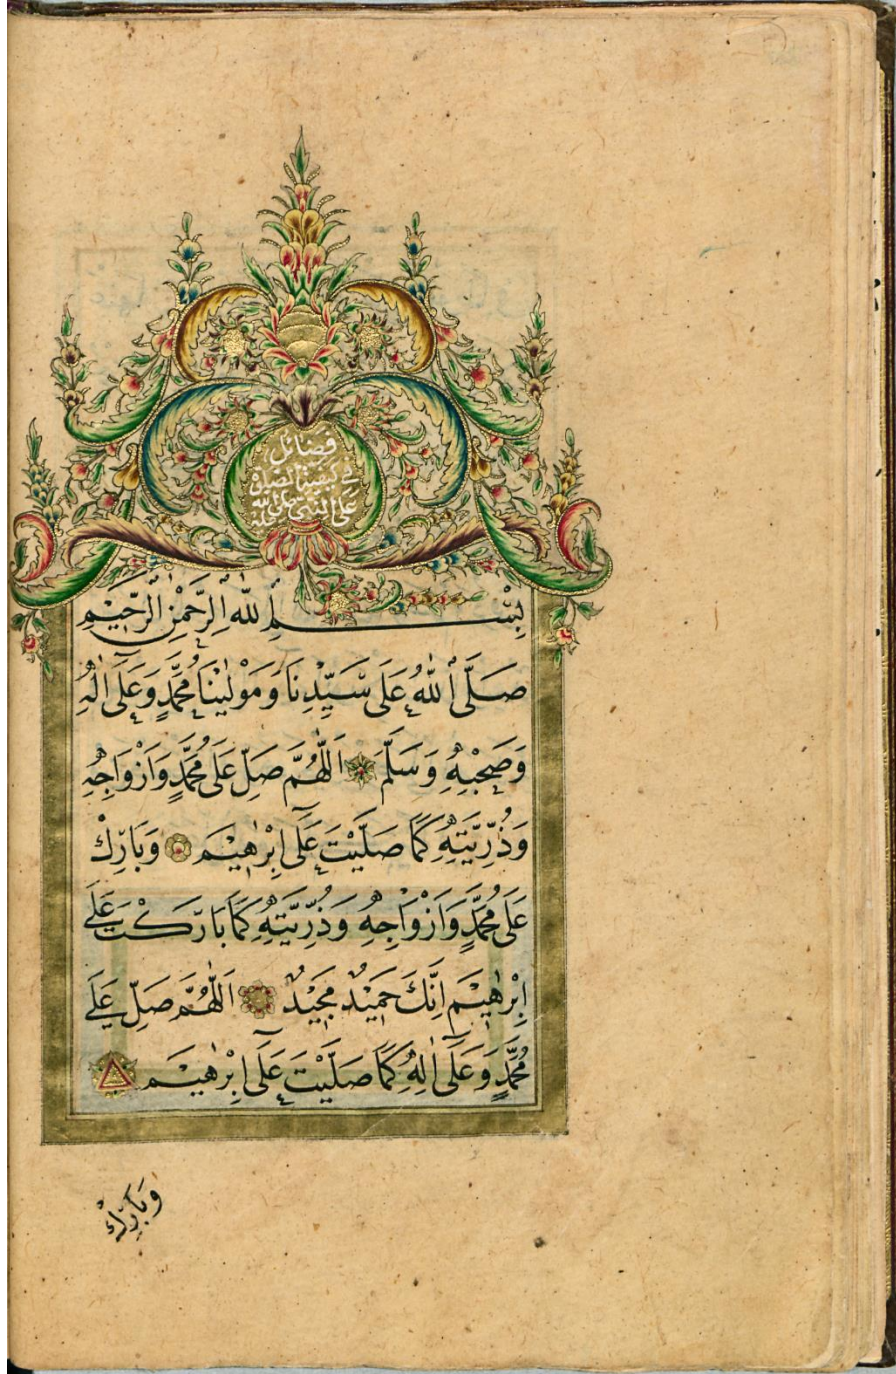 فضائل
في كيفية الصلوة
على النبي صلى الله
عليه
بِسْمِ اللهِ الرَّحْمٰنِ الرَّحِيْمِ
صَلَّى اللهُ عَلَى سَيِّدِنَا وَمَوْلٰينَا مُحَمَّدٍ وَعَلَى اٰلِهٖ
وَصَحْبِهٖ وَسَلَّمَ اَللّٰهُمَّ صَلِّ عَلَى مُحَمَّدٍ وَاَزْوَاجِهٖ
وَذُرِّيَّتِهٖ كَمَا صَلَّيْتَ عَلَى اِبْرٰهِيْمَ وَبَارِكْ
عَلَى مُحَمَّدٍ وَاَزْوَاجِهٖ وَذُرِّيَّتِهٖ كَمَا بَارَكْتَ عَلَى
اِبْرٰهِيْمَ اِنَّكَ حَمِيْدٌ مَجِيْدٌ اَللّٰهُمَّ صَلِّ عَلَى
مُحَمَّدٍ وَعَلَى اٰلِهٖ كَمَا صَلَّيْتَ عَلَى اِبْرٰهِيْمَ
وَبَارِكْ